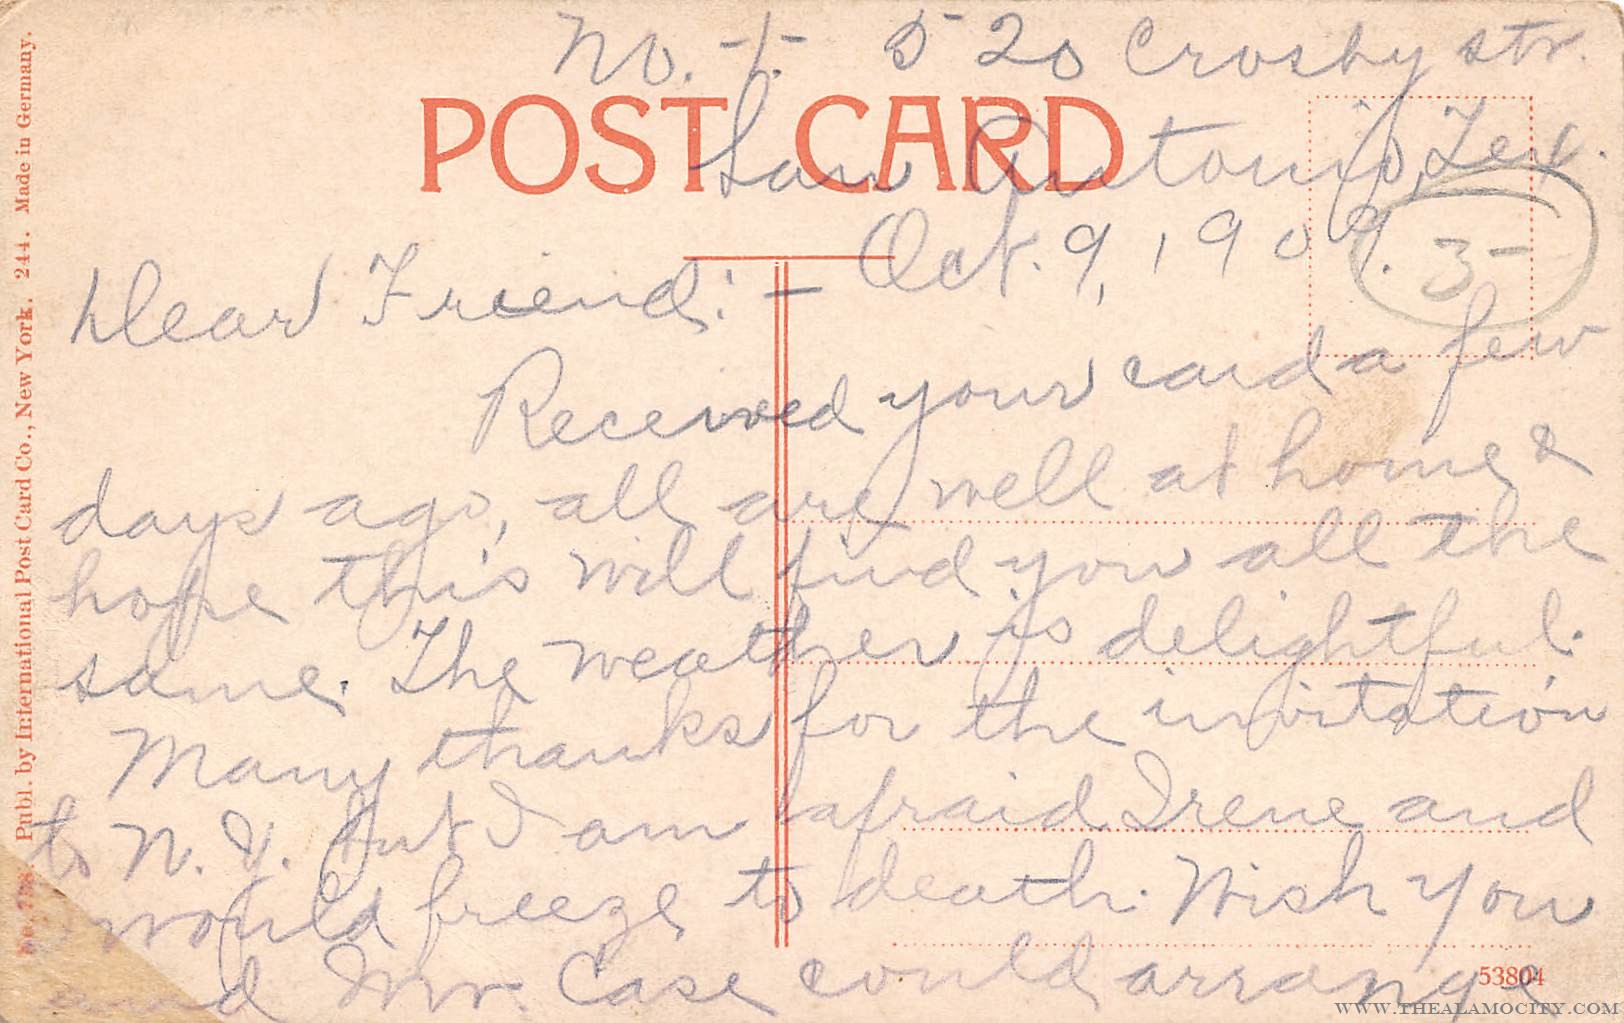 No. -1- 520 Crosby str.
POST CARD
San Antonio, Tex.
Oct. 9, 1909.
3-
Dear Friend: -
Received your card a few
days ago, all are well at home &
hope this will find you all the
same. The weather is delightful.
Many thanks for the invitation
to N. Y. but I am afraid Irene and
I would freeze to death. Wish you
and Mr. Case could arrange
Publ. by International Post Card Co., New York. 244. Made in Germany.
53804
WWW.THEALAMOCITY.COM